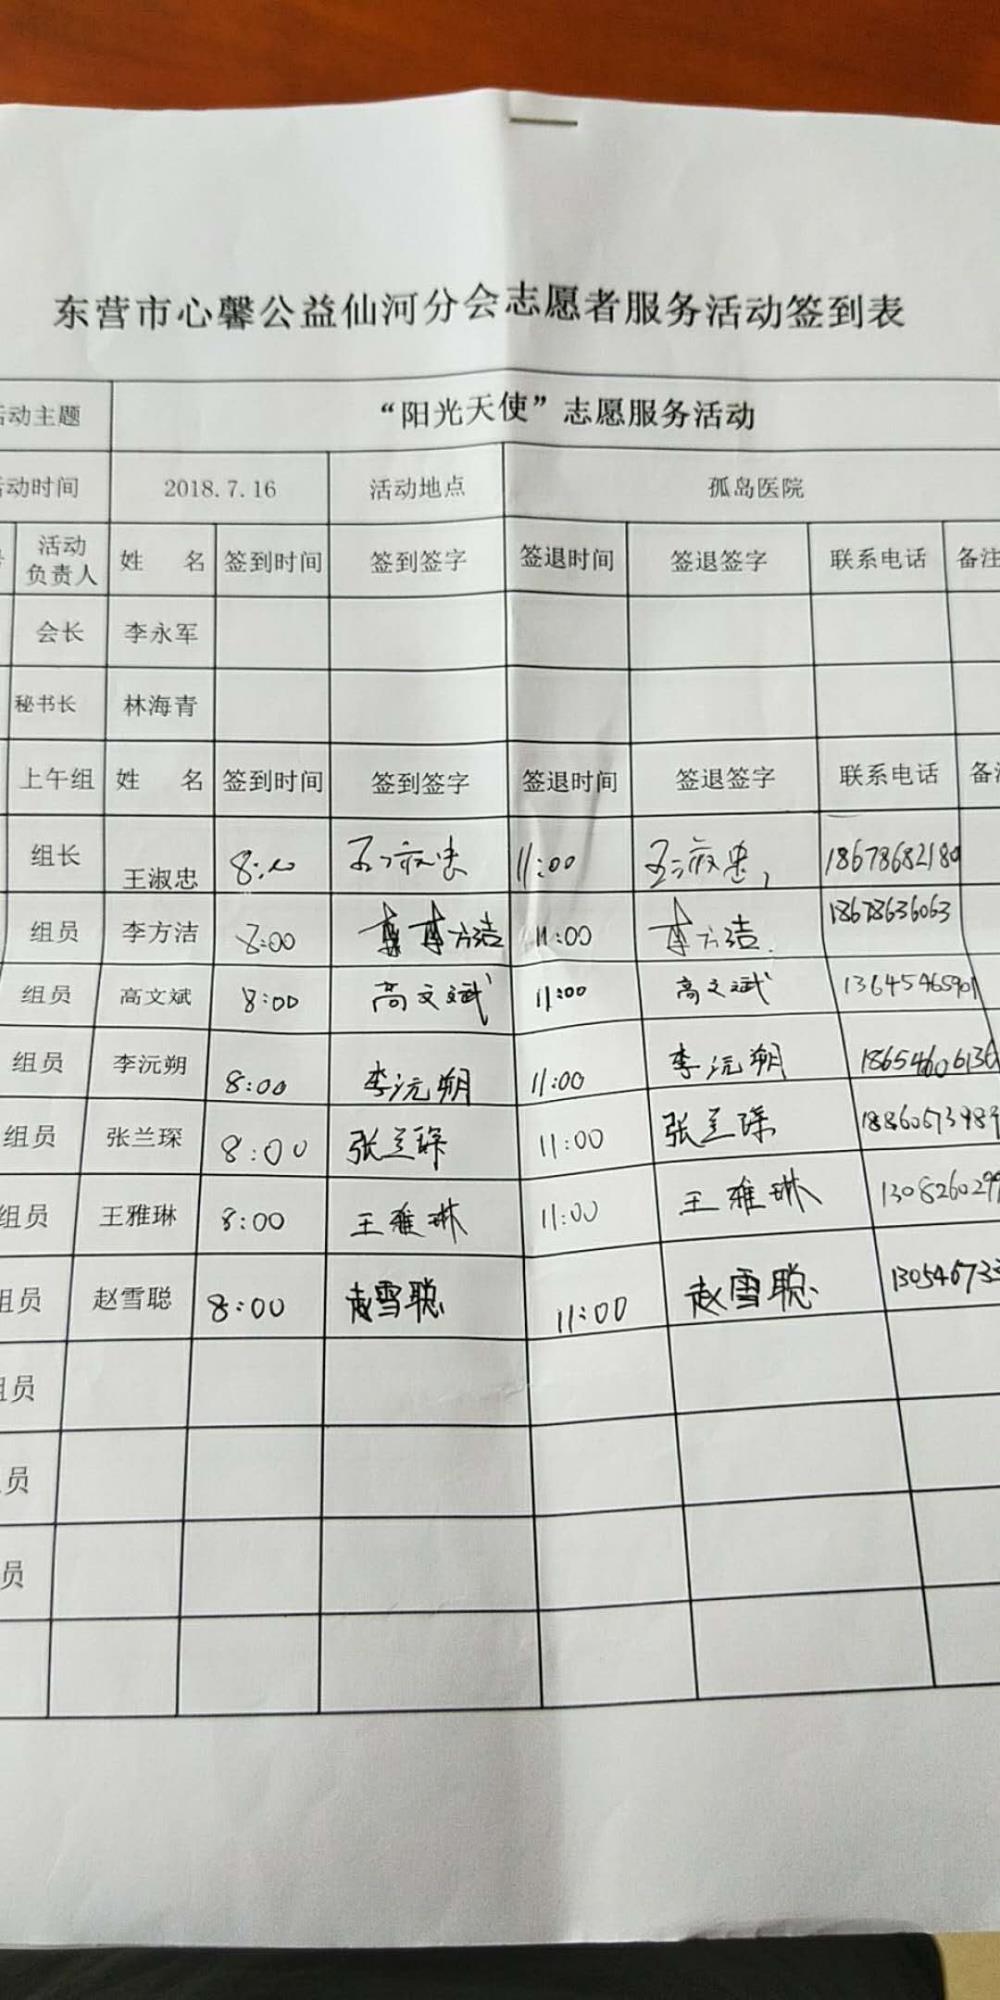 东营市心馨公益仙河分会志愿者服务活动签到表
活动主题 “阳光天使”志愿服务活动
活动时间 2018.7.16 活动地点 孤岛医院
活动负责人 姓 名 签到时间 签到签字 签退时间 签退签字 联系电话 备注
会长 李永军
秘书长 林海青
上午组 姓 名 签到时间 签到签字 签退时间 签退签字 联系电话 备注
组长 王淑忠 8:00 王淑忠 11:00 王淑忠 18678682180
组员 李方洁 8:00 李方洁 11:00 李方洁 18678636063
组员 高文斌 8:00 高文斌 11:00 高文斌 13645465901
组员 李沅朔 8:00 李沅朔 11:00 李沅朔 1865460613
组员 张兰琛 8:00 张兰琛 11:00 张兰琛 1886067398
组员 王雅琳 8:00 王雅琳 11:00 王雅琳 130826029
组员 赵雪聪 8:00 赵雪聪 11:00 赵雪聪 130546733
组员
组员
员